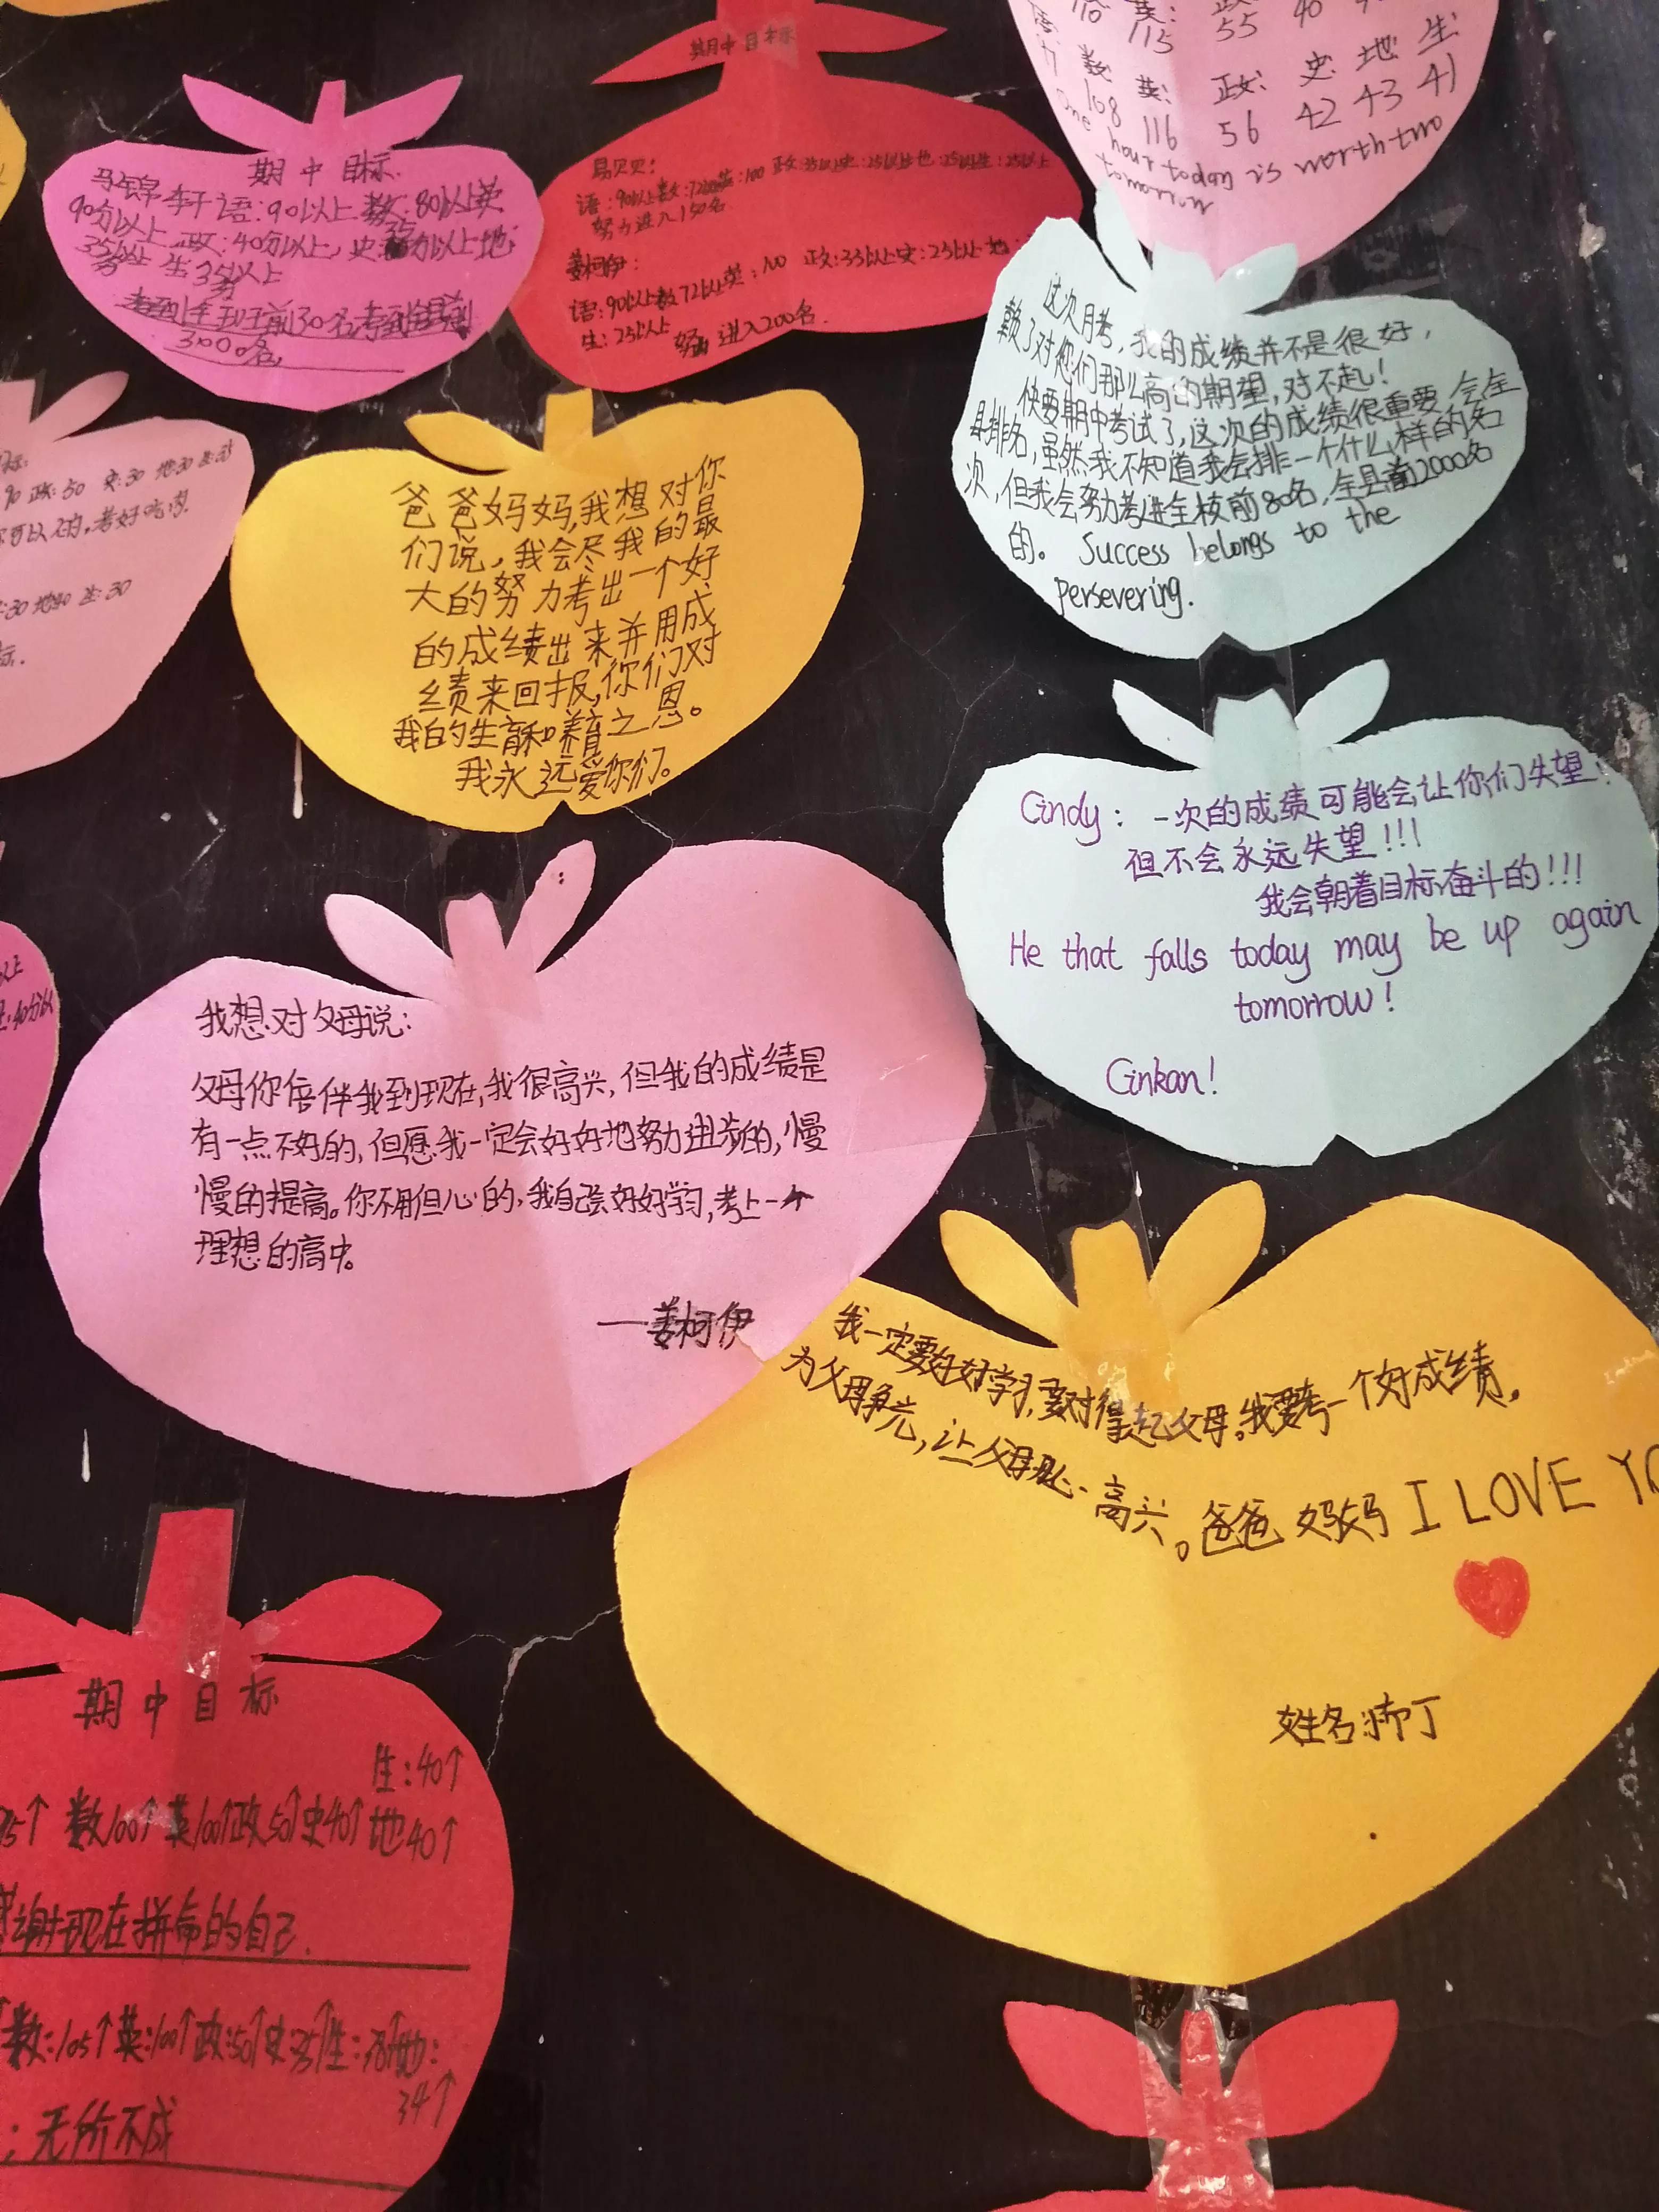 110 英: 政: 40
115 55
数: 英: 政: 史: 地: 生:
108 116 56 42 43 41
One hour today is worth two
tomorrow
期中目标
易贝贝:
语:90以上数:72以上英:100 政:35以上史:25以上地:25以上生:25以上
努力进入150名
姜柯伊:
语:90以上数72以上英:100 政:35以上史:25以上地:
生:25以上 努力进入200名.
期中目标
马锦 李子 语:90以上 数:80以上英
90分以上 政:40分以上, 史: 分以上地:
35分以上 生35分以上
考到全班前30名考到全县前
3000名
这次月考,我的成绩并不是很好,
了对您们那么高的期望,对不起!
快要期中考试了,这次的成绩很重要,会全
县排名,虽然我不知道我会排一个什么样的名
次,但我会努力考进全校前80名,全县前2000名
的。 Success belongs to the
persevering.
标:
90 政:50 史:30 地30 生35
:30 地40 生:30
标.
爸爸妈妈,我想对你
们说,我会尽我的最
大的努力考出一个好
的成绩出来并用成
绩来回报,你们对
我的生育和养育之恩。
我永远爱你们。
Cindy: 一次的成绩可能会让你们失望:
但不会永远失望!!!
我会朝着目标奋斗的!!!
He that falls today may be up again
tomorrow!
Cinkan!
以上
40分以
我想对父母说:
父母你陪伴我到现在,我很高兴,但我的成绩是
有一点不好的,但愿我一定会好好地努力进步的,慢
慢的提高。你不用但心的,我自己会好好学习,考上一个
理想的高中。
——姜柯伊
我一定要好好学习,要对得起父母。我要考一个好成绩,
为父母争光,让父母开心、高兴。爸爸 妈妈 I LOVE YO
姓名:
期中目标
生:40↑
95↑ 数100↑ 英100↑政50↑史40↑地40↑
感谢现在拼命的自己.
数:105↑英:100↑政:50↑史:35↑生:38↑地:
34↑
;无所不成